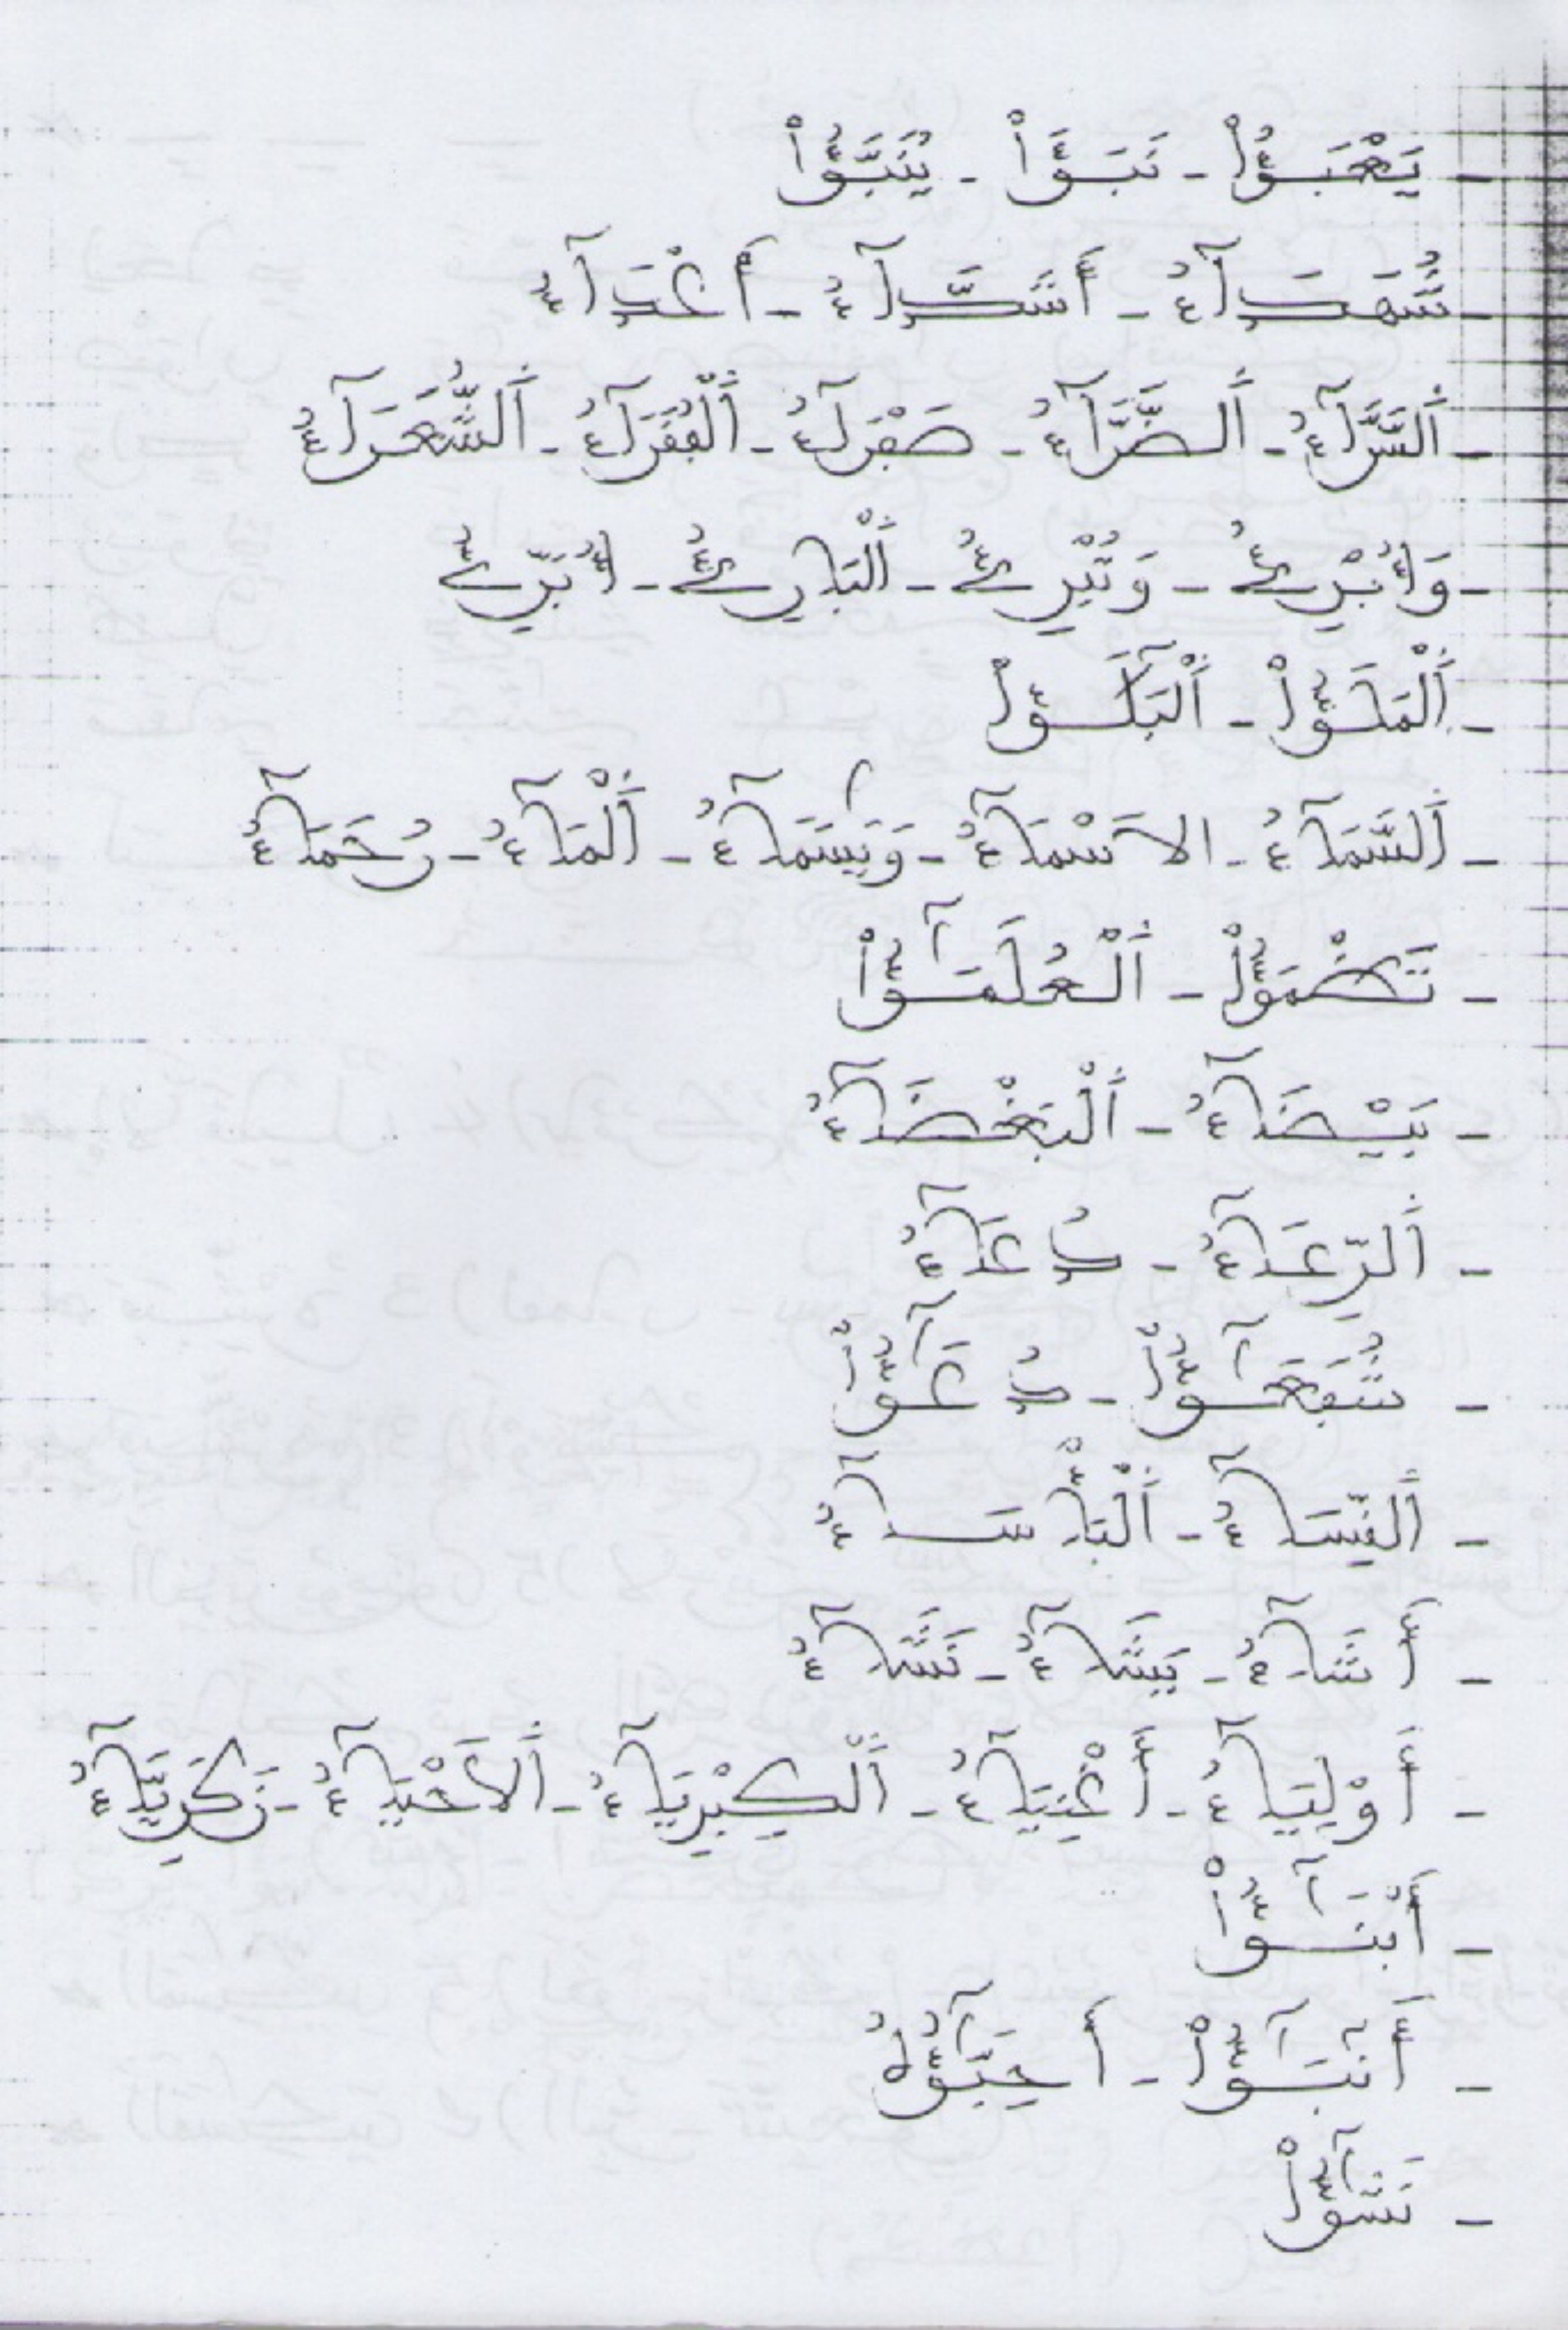 - يَعْبَؤُاْ - نَبَؤٌاْ - يُنَبَّؤُاْ
- شُهَدَآءُ - أَشِدَّآءُ - أَعْدَآءٗ
- اَلسَّرَّآءُ - اَلضَّرَّآءُ - صَفْرَآءُ - اَلْفُقَرَآءُ - اَلشُّعَرَآءُ
- وَأُبْرِئُ - وَتُبْرِئُ - اَلْبَارِئُ - أُبَرِّئُ
- اَلْمَلَؤُاْ - اَلْبَلَٰٓؤُاْ
- اَلسَّمَآءُ - الاَسْمَآءُ - وَيَٰسَمَآءُ - اَلْمَآءُ - رُحَمَآءُ
- تَظْمَؤُاْ - اَلْعُلَمَٰٓؤُاْ
- بَيْضَآءُ - اَلْبَغْضَآءُ
- اَلرِّعَآءُ - دُعَآءُ
- شُفَعَٰٓؤُاْ - دُعَٰٓؤُاْ
- اَلنِّسَآءُ - اَلْبَأْسَآءُ
- أَشَآءُ - يَشَآءُ - نَشَآءُ
- أَوْلِيَآءُ - أَغْنِيَآءُ - اَلْكِبْرِيَآءُ - اَلاَحْيَآءُ - زَكَرِيَّآءُ
- أَبْنَٰٓؤُاْ
- أَنۢبَٰٓؤُاْ - أَحِبَّٰٓؤُهُ
- نَشَٰٓؤُاْ